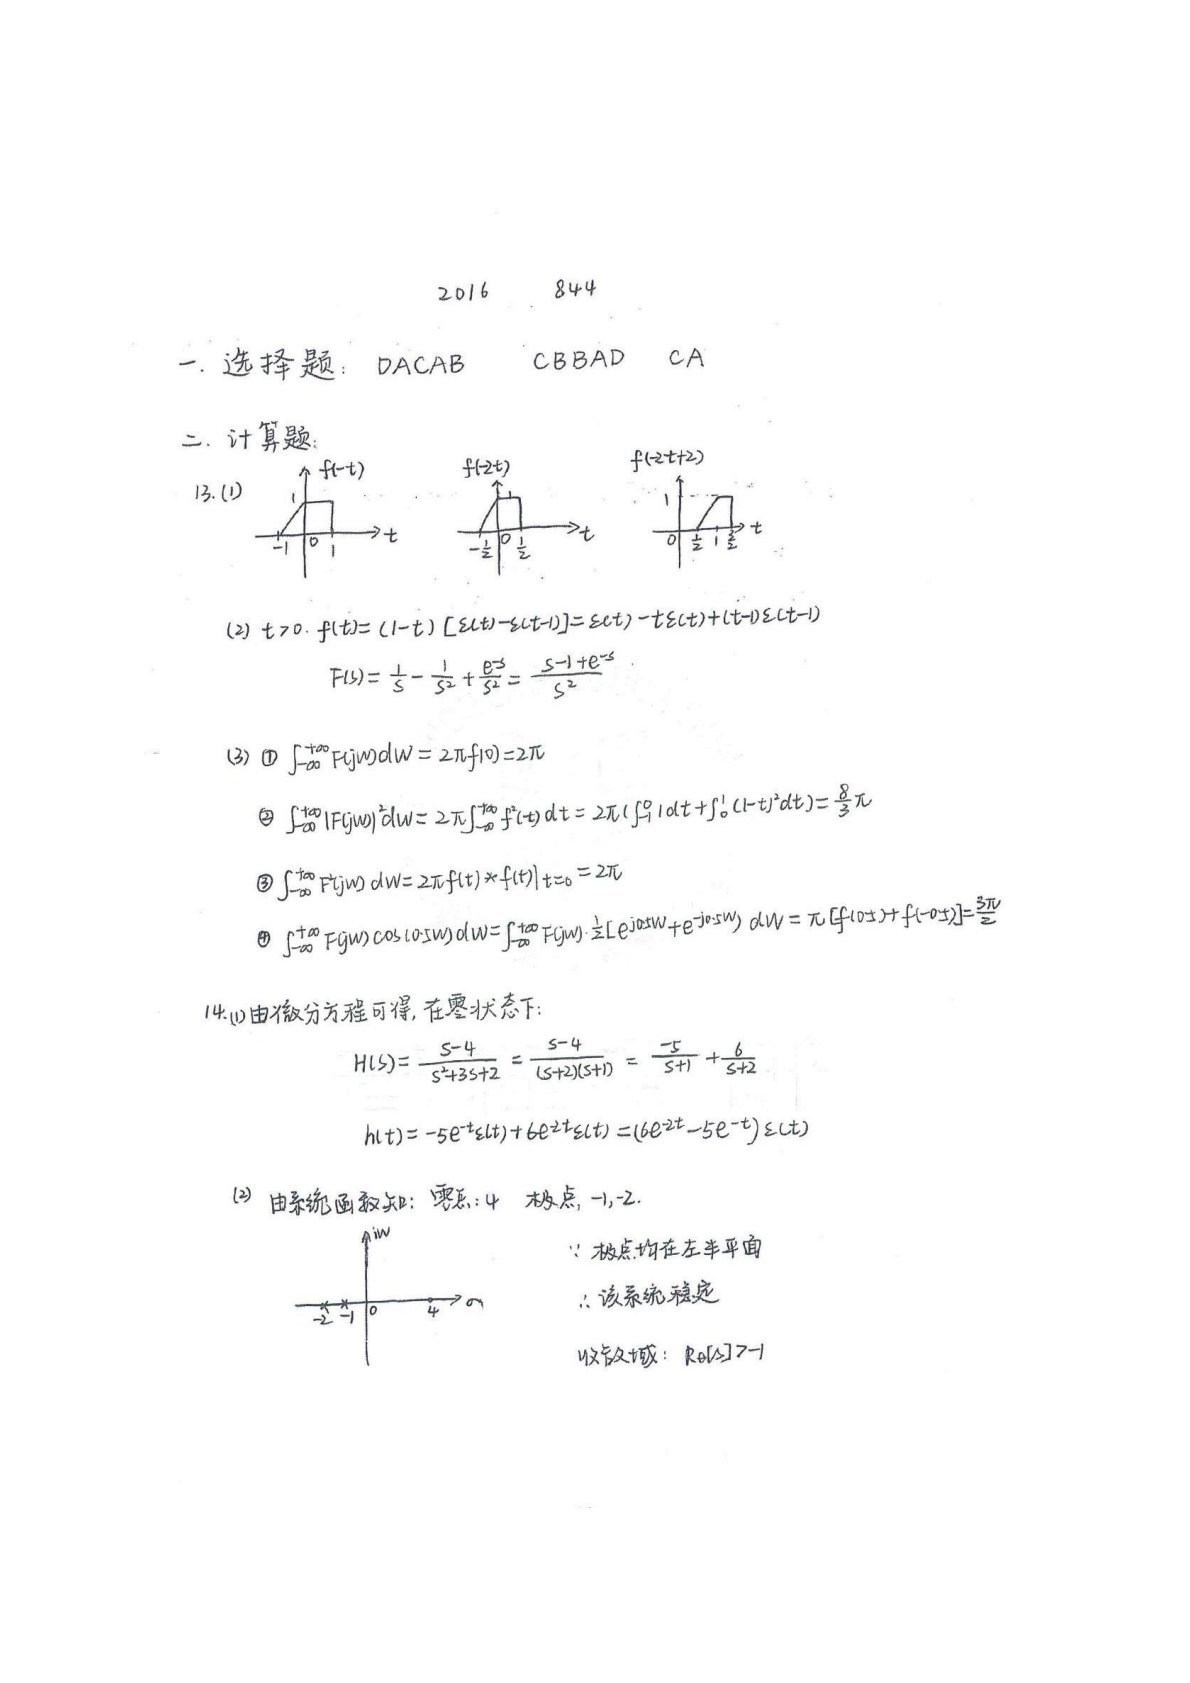 2016 844
一. 选择题: DACAB CBBAD CA
二. 计算题:
13.(1) f(-t) f(-2t) f(-2t+2)
1 1 1
-1 0 1 t -1/2 0 1/2 t 0 1/2 1 3/2 t
(2) t>0. f(t)=(1-t)[ε(t)-ε(t-1)]=ε(t)-tε(t)+(t-1)ε(t-1)
F(s)=1/s-1/s²+e^-s/s²=(s-1+e^-s)/s²
(3) ① ∫_-∞^+∞ F(jw)dw=2πf(0)=2π
② ∫_-∞^+∞ |F(jw)|²dw=2π∫_-∞^+∞ f²(t)dt=2π(∫_-1^0 1dt+∫_0^1 (1-t)²dt)=8/3π
③ ∫_-∞^+∞ F²(jw)dw=2πf(t)*f(t)|t=0=2π
④ ∫_-∞^+∞ F(jw)cos(0.5w)dw=∫_-∞^+∞ F(jw)·1/2[e^j0.5w+e^-j0.5w) dw=π[f(0.5)+f(-0.5)]=3π/2
14.(1)由微分方程可得,在零状态下:
H(s)=(s-4)/(s²+3s+2)=(s-4)/((s+2)(s+1))=-5/(s+1)+6/(s+2)
h(t)=-5e^-tε(t)+6e^-2tε(t)=(6e^-2t-5e^-t)ε(t)
(2) 由系统函数知: 零点:4 极点,-1,-2.
jw
∵ 极点均在左半平面
-2 -1 0 4 σ
∴该系统稳定
收敛域: Re[s]>-1